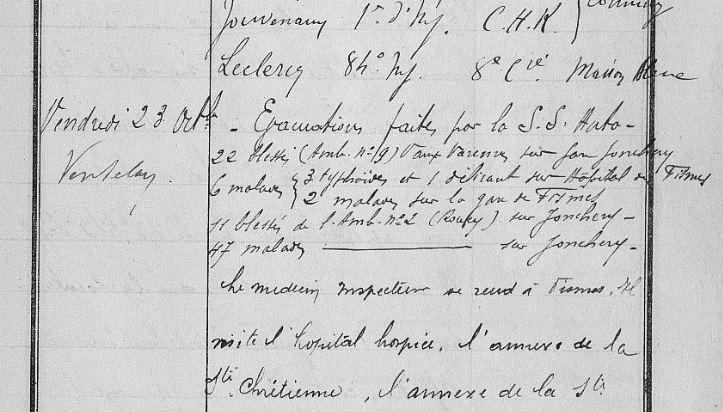 Jouvenaux 1er d'Inf. C.H.R.
Leclercq 84e Inf. 8e Cie Maison Bleue
Vendredi 23 Octb
Ventelay
- Evacuations faites par la S.S. Auto -
22 blessés (Amb. no 19) Vaux Varennes sur gare Jonchery
6 malades { 3 typhoïdes et 1 délirant sur Hôpital de Fismes
2 malades sur la gare de Fismes
11 blessés de l'Amb. no 2 (Roucy) sur Jonchery -
47 malades ———— sur Jonchery -
Le médecin Inspecteur se rend à Fismes. Il
visite l'hopital hospice, l'annexe de la
Ste Chrétienne, l'annexe de la Ste